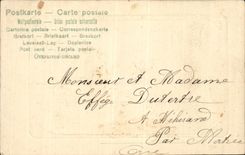 Postkarte — Carte postale
Weltpostverein — Union postale universelle
Cartolina postale — Correspondenzkarte
Brefkort — Briefkaart — Brevkort
Levelezö-Lap — Dopisnice
Post card — Tarjeta postal
Monsieur et Madame
Dutertre
A
Par